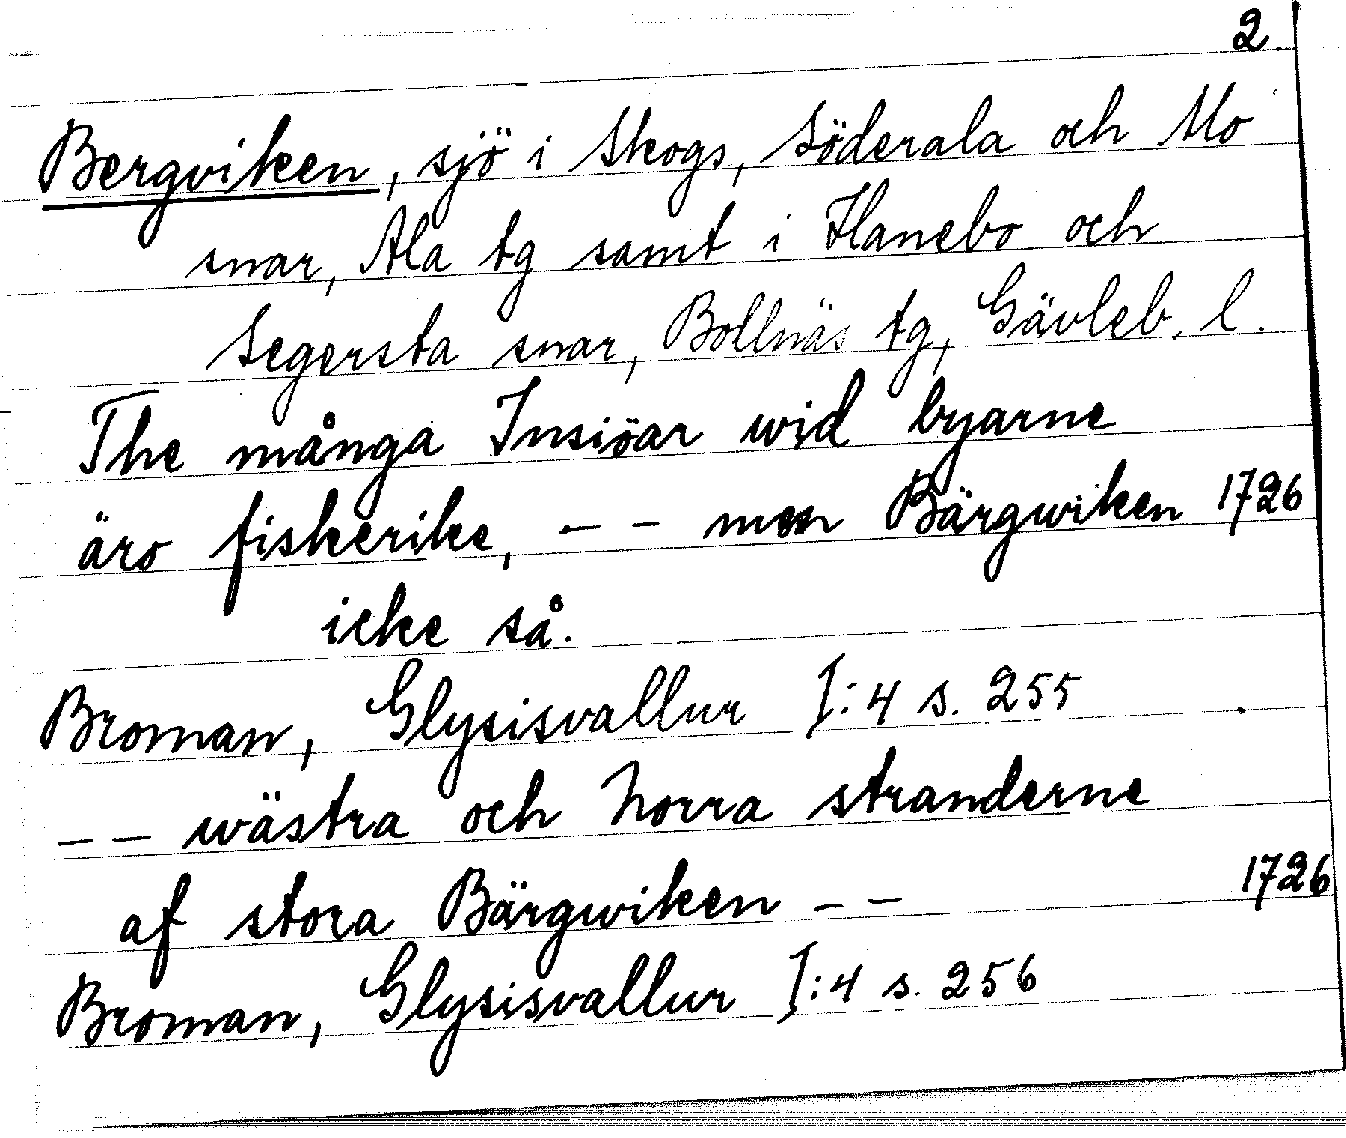 2
Bergviken, sjö i Skogs, Söderala och Mo
snar, Ala tg samt i Hanebo och
Segersta snar, Bollnäs tg, Gävleb. l.
The många Insiöar wid byarne
äro fiskerike, – – men Bärgwiken 1726
icke så.
Broman, Glysisvallur I:4 s. 255
– – wästra och Norra stranderne
af stora Bärgwiken – – 1726
Broman, Glysisvallur I:4 s. 256